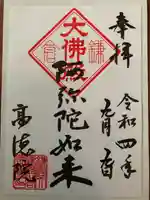 奉拝
令和四年
大佛
鎌倉
阿弥陀如来
高徳院